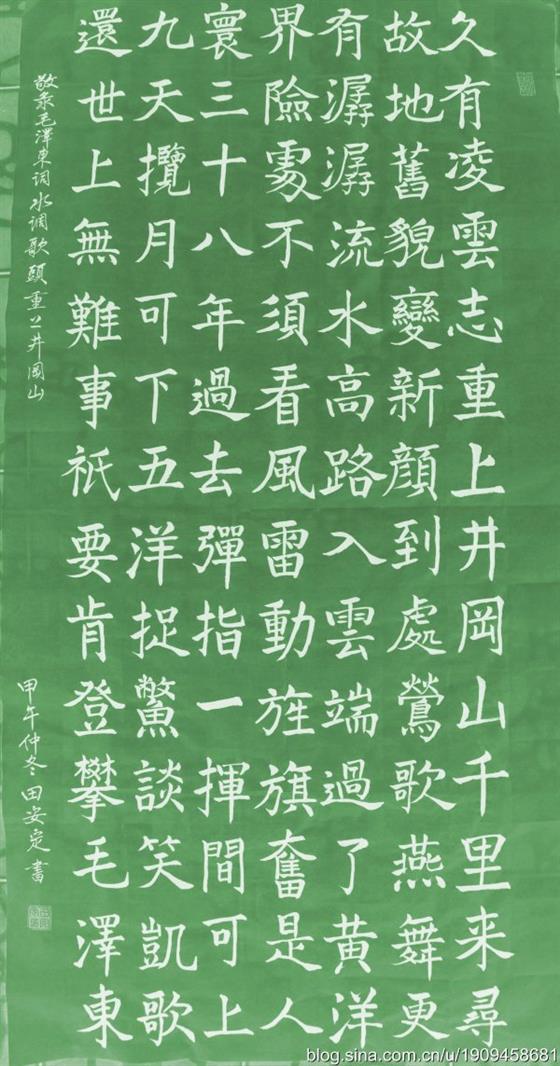 久有凌雲志重上井岡山千里来尋
故地舊貌變新顔到處鶯歌燕舞更
有潺潺流水高路入雲端過了黄洋
界險處不須看風雷動旌旗奮是人
寰三十八年過去彈指一揮間可上
九天攬月可下五洋捉鱉談笑凱歌
還世上無難事祇要肯登攀毛澤東
敬录毛澤東词水调歌頭重上井岡山
甲午仲冬田安定書
blog.sina.com.cn/u/1909458681